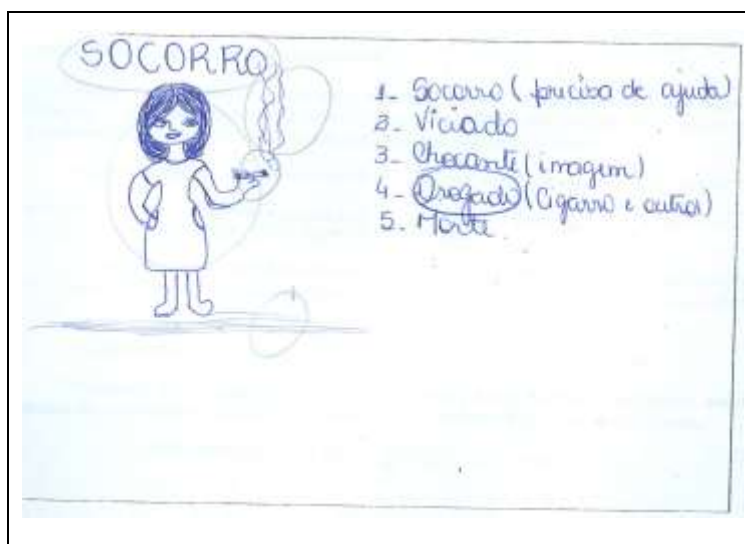 SOCORRO
1- Socorro (preciso de ajuda)
2- Viciado
3- Chocante (imagem)
4- Drogado (Cigarro e outros)
5. Morte